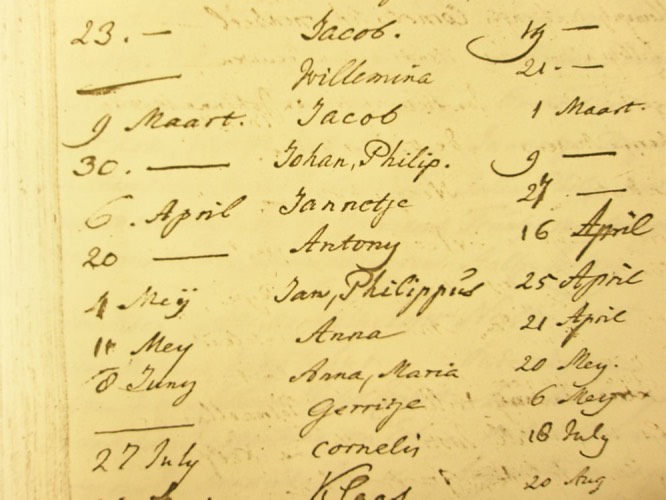 23. — Jacob. 19 —
— Willemina 21. —
9 Maart. Jacob 1 Maart.
30. — Johan, Philip. 9 —
6. April Jannetje 27 —
20 — Antony 16 April
4 Meÿ Jan, Philippús 25 April
11 Mey Anna 21 April
8 Juny Anna, Maria 20 Mey.
— Gerritje 6 Mey
27 July Cornelis 18 July
Klaas 20 Aug